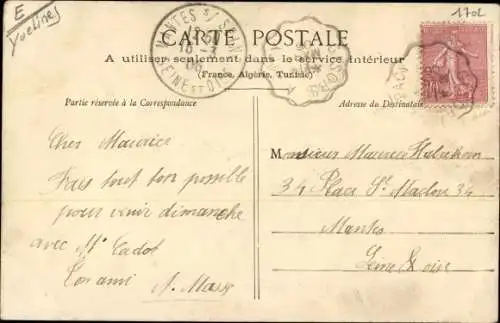 E
Yvelines
1702
MANTES S/ SEINE
SEINE ET OISE
CARTE POSTALE
A utiliser seulement dans le service intérieur
(France, Algérie, Tunisie)
Partie réservée à la Correspondance
Adresse du Destinataire
Cher Maurice
Fais tout ton possible
pour venir dimanche
avec Mr Cadot
Ton ami A. Mass
Monsieur Maurice
34 Place St Maclou 34
Mantes
Seine & oise